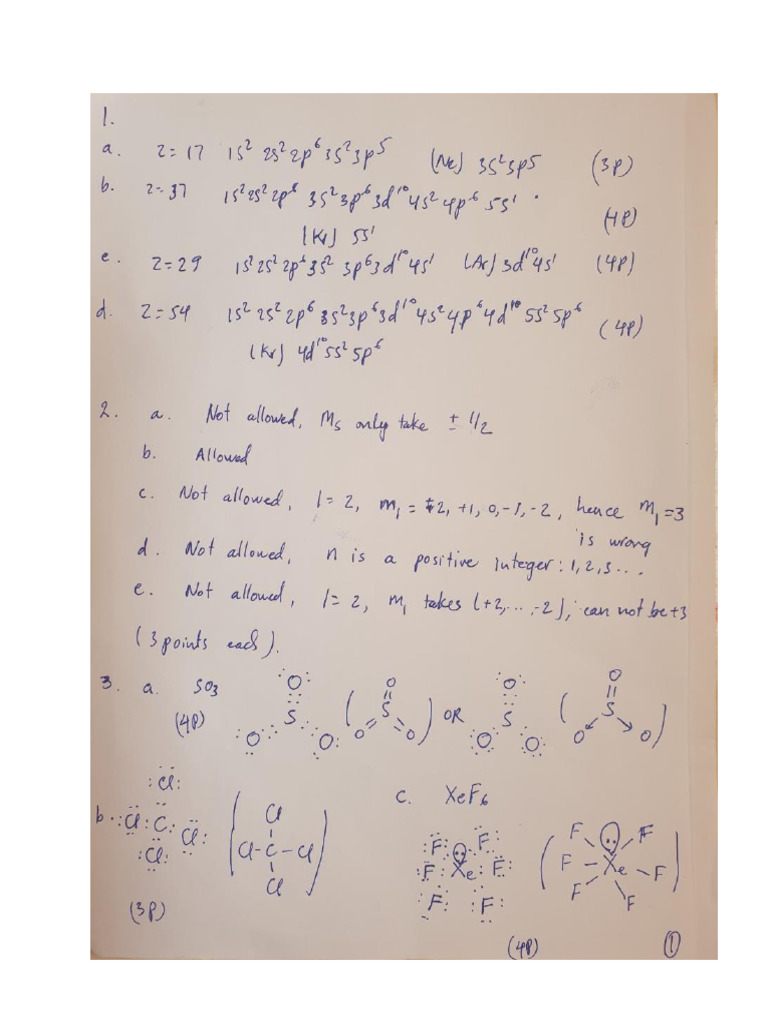 1.
a. Z=17 1s² 2s² 2p⁶ 3s² 3p⁵ (Ne) 3s² 3p5 (3p)
b. Z=37 1s² 2s² 2p⁶ 3s² 3p⁶ 3d¹⁰ 4s² 4p⁶ 5s¹ (4p)
(Kr) 5s¹
c. Z=29 1s² 2s² 2p⁶ 3s² 3p⁶ 3d¹⁰ 4s¹ (Ar) 3d¹⁰ 4s¹ (4p)
d. Z=54 1s² 2s² 2p⁶ 3s² 3p⁶ 3d¹⁰ 4s² 4p⁶ 4d¹⁰ 5s² 5p⁶ (4p)
(Kr) 4d¹⁰ 5s² 5p⁶
2. a. Not allowed, Ms only take ± 1/2
b. Allowed
c. Not allowed, l = 2, ml = +2, +1, 0, -1, -2, hence ml = 3
is wrong
d. Not allowed, n is a positive integer: 1, 2, 3 ...
e. Not allowed, l = 2, ml takes (+2, ..., -2), can not be +3
(3 points each).
3. a. SO3
(4p)
:O: S :O: :O: (O = S = O O) OR :O: S :O: :O: (O = S O O)
b. :Cl: :Cl: C :Cl: :Cl: (Cl Cl - C - Cl Cl)
(3p)
c. XeF6
:F: :F: :F: Xe :F: :F: :F: (F F F - Xe - F F F)
(4p)
①